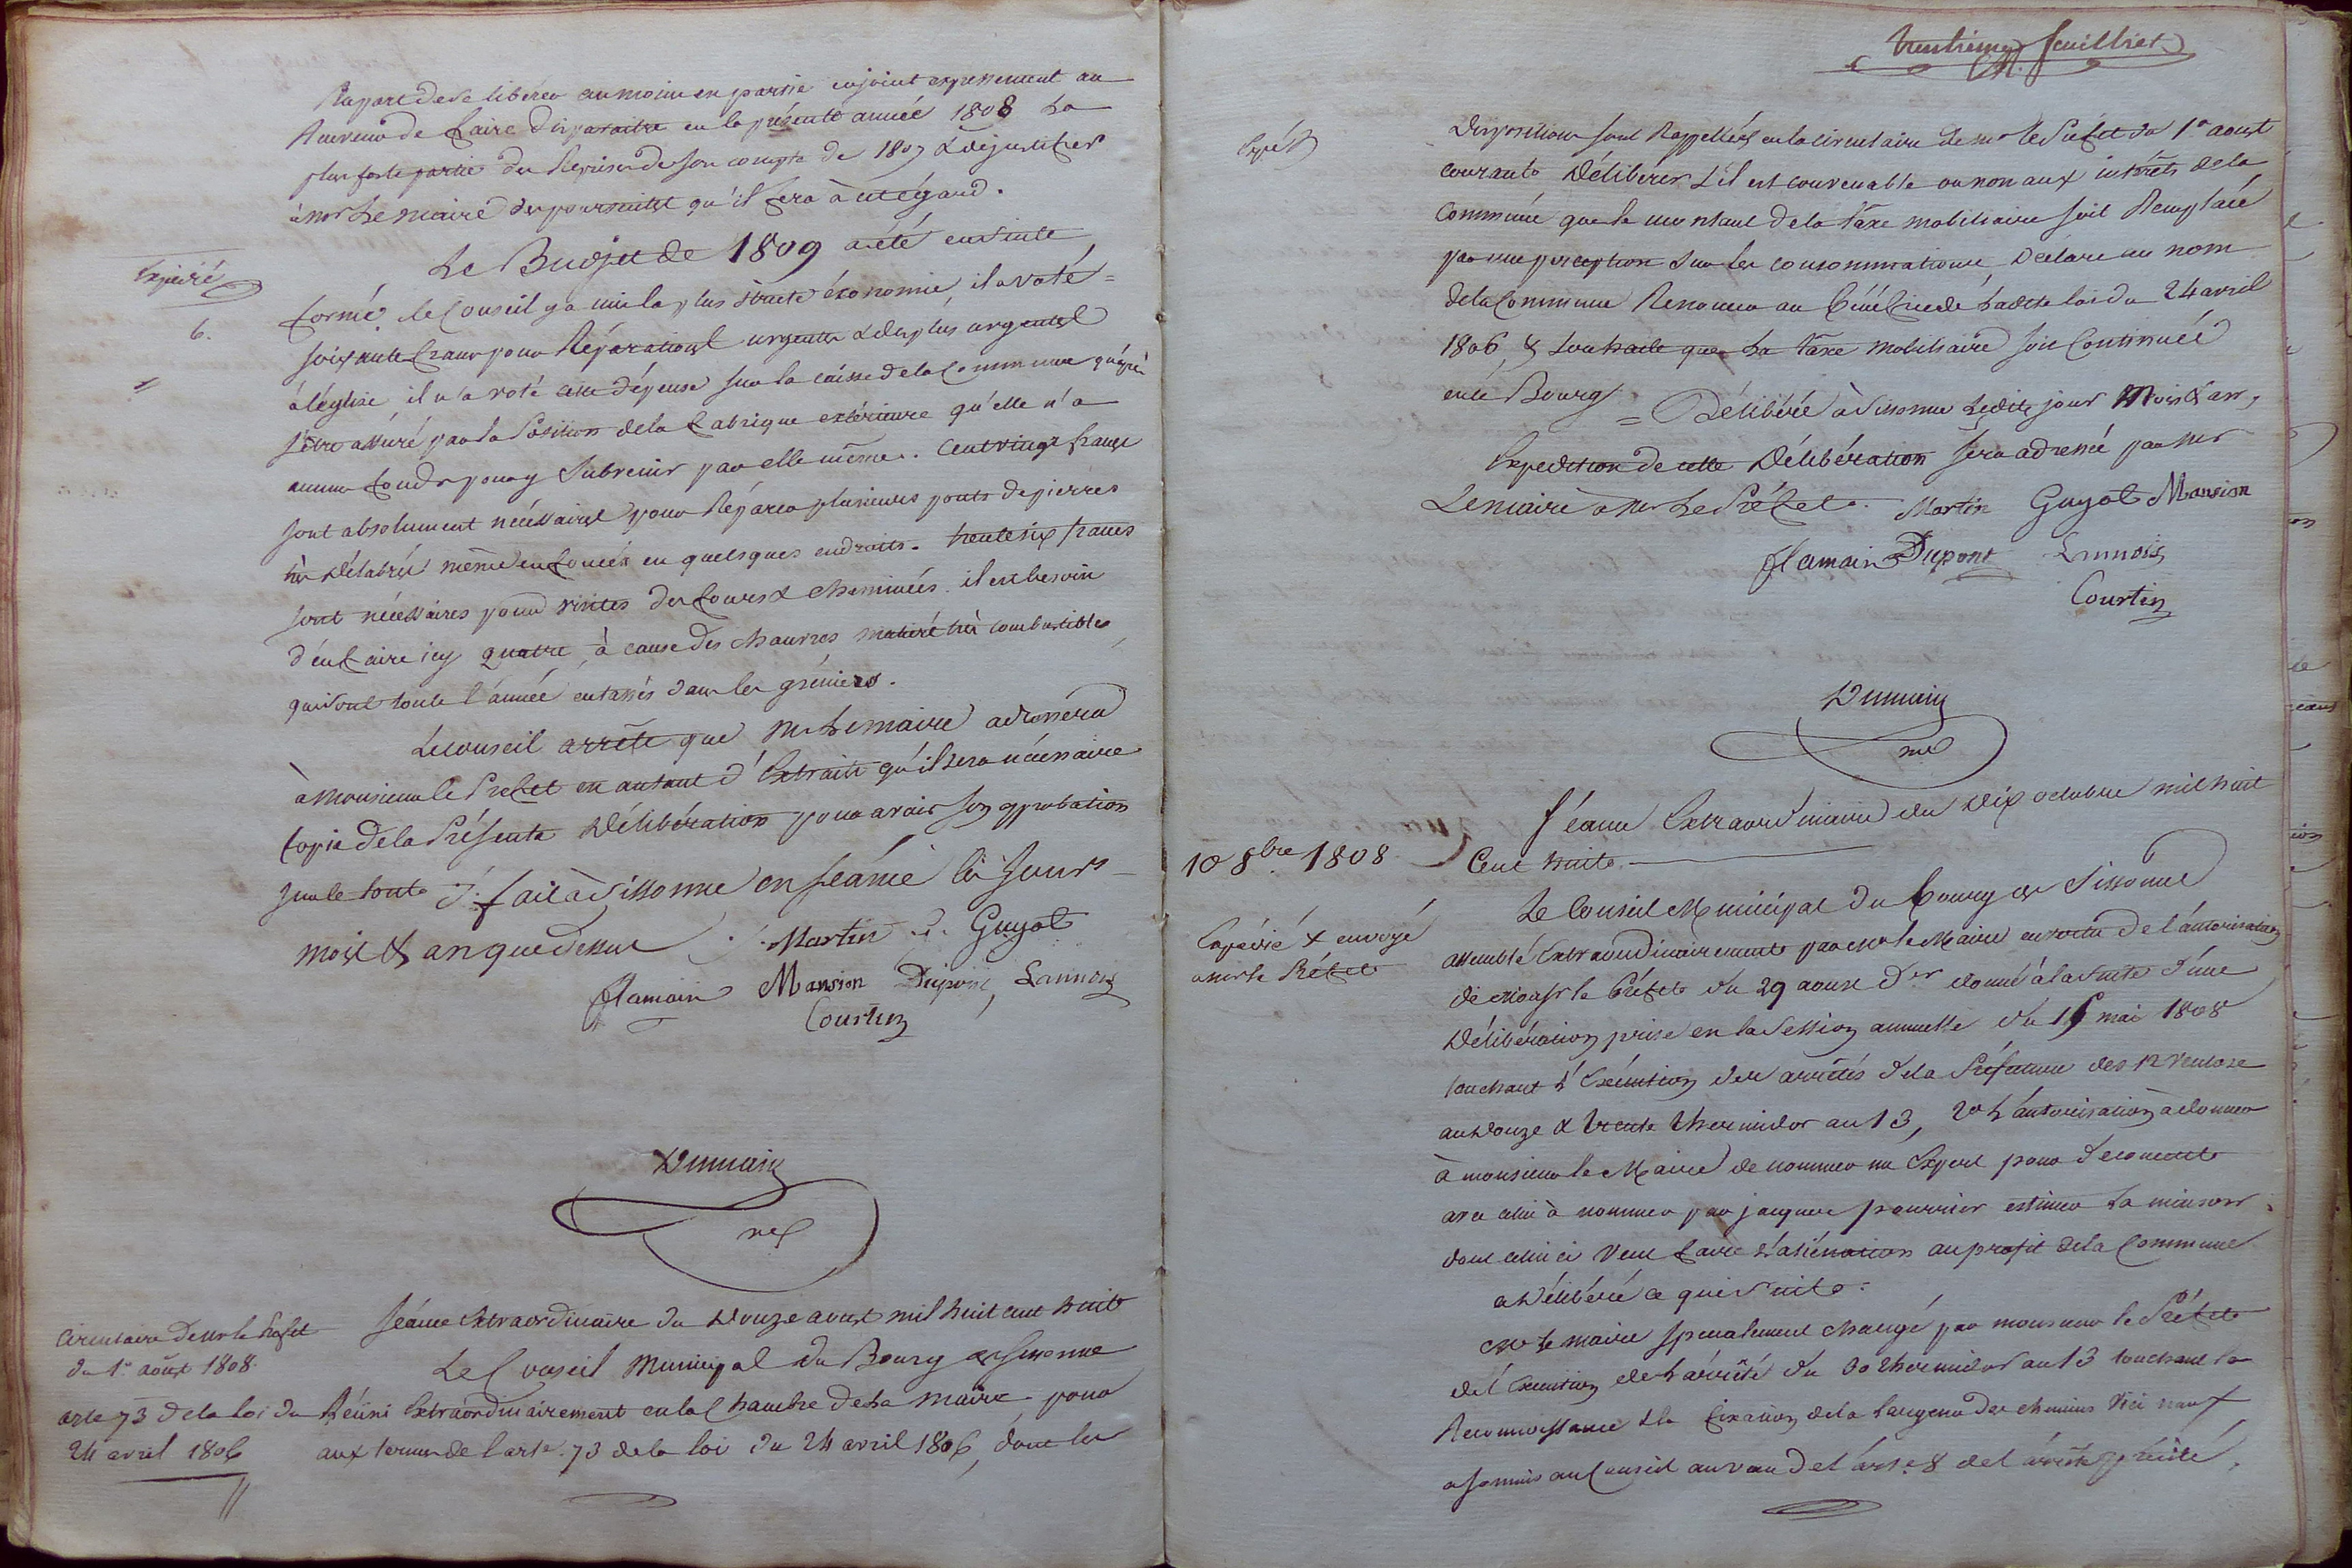 Rapport de se libérer au moins en partie enjoint expressement au
Receveur de faire disparaitre en la présente année 1808 La
plus forte partie des Reprises de son compte de 1807 & de justifier
à mr Le maire des poursuites qu'il fera à cet égard.
Expédié
6.
Le Budjet de 1809 a été ensuite
formé. le Conseil y a mis la plus stricte économie, il a voté
soixante francs pour Réparations urgentes & des plus urgentes
à léglise il n'a voté cette dépense sur la caisse de la Commune qu'après
s'être assuré par la Position de la fabrique extérieure qu'elle n'a
aucun fonds pour y Subvenir par elle même. Cent vingt francs
sont absolument nécéssaires pour Réparer plusieurs ponts de pierres
très Délabrés même enfoncés en quelsques endroits. trente six francs
sont nécéssaires pour visites des fours & cheminées. il est besoin
d'en faire icy quatre, à cause des chanvres matière très combustible
qui sont toute l'année entassés dans les gréniers.
Le conseil arrête que mr Le maire adressera
à Monsieur le Préfet en autant d'Extraits qu'il sera nécessaire
copie de la Présente Délibération pour avoir son approbation
sur le tout. fait à Sissonne en séance les Jours
mois & an que dessus Martin Guyot
flamain Mansion Dupont Lannois
Courtin
Circulaire de mr le Préfet
du 1er août 1808.
arte 73 de la loi du
24 avril 1806
Séance Extraordinaire du Douze aoust mil huit cent huit
Le Conseil Municipal du Bourg de Sissonne
Réuni Extraordinairement en la Chambre de La mairie pour
aux termes de l'arte. 73 de la loi du 24 avril 1806, dont les
trentieme feuillet
Expédié
Dispositions sont Rappellées en la circulaire de mr le Préfet du 1er aoust
courant Délibérer s'il est convenable ou non aux intérêts de la
Commune que le montant de la taxe mobiliaire soit Remplacé
par une perception sur les consommations, Déclare au nom
de la Commune Renoncer au bénéfice de Ladite loi du 24 avril
1806, & souhaite que La taxe mobiliaire soit Continuée
en ce Bourg
= Délibéré à Sissonne Lesdits jour Mois & an,
Expedition de cette Délibération sera adressé par mr
Le maire à mr Le Préfet. Martin Guyot Mansion
flamain Dupont Lannois
Courtin
10 8bre 1808
Séance Extraordinaire du Dix octobre mil huit
Cent huit.
Expédié & envoyé
a mr le Préfet
Le Conseil Municipal du bourg de Sissonne
assemblé Extraordinairement par mr le Maire en vertu de l'autorisation
de monsr le Préfet du 29 aoust Der donné à la suite d'une
Délibération prise en la Session annuelle du 15 mai 1808
touchant L'Exécution des arrêtés de la Préfecture des 12 ventose
an douze & trente thermidor an 13, 2o L'autorisation à donner
à monsieur le Maire de nommer un Expert pour de concert
avec celui à nommer par jacques pourrier estimer La maison
dont celui ci veut faire L'aliénation au profit de la Commune
a Délibéré ce qui suit.
mr le maire spécialement chargé par monsieur le Préfet
de l'Exécution de L'arrêté du 30 thermidor an 13 touchant la
Reconnoissance & la fixation de la largeur des chemins vicinaux
a soumis au Conseil au vœu de l'arte. 8 de l'arrêté précité,